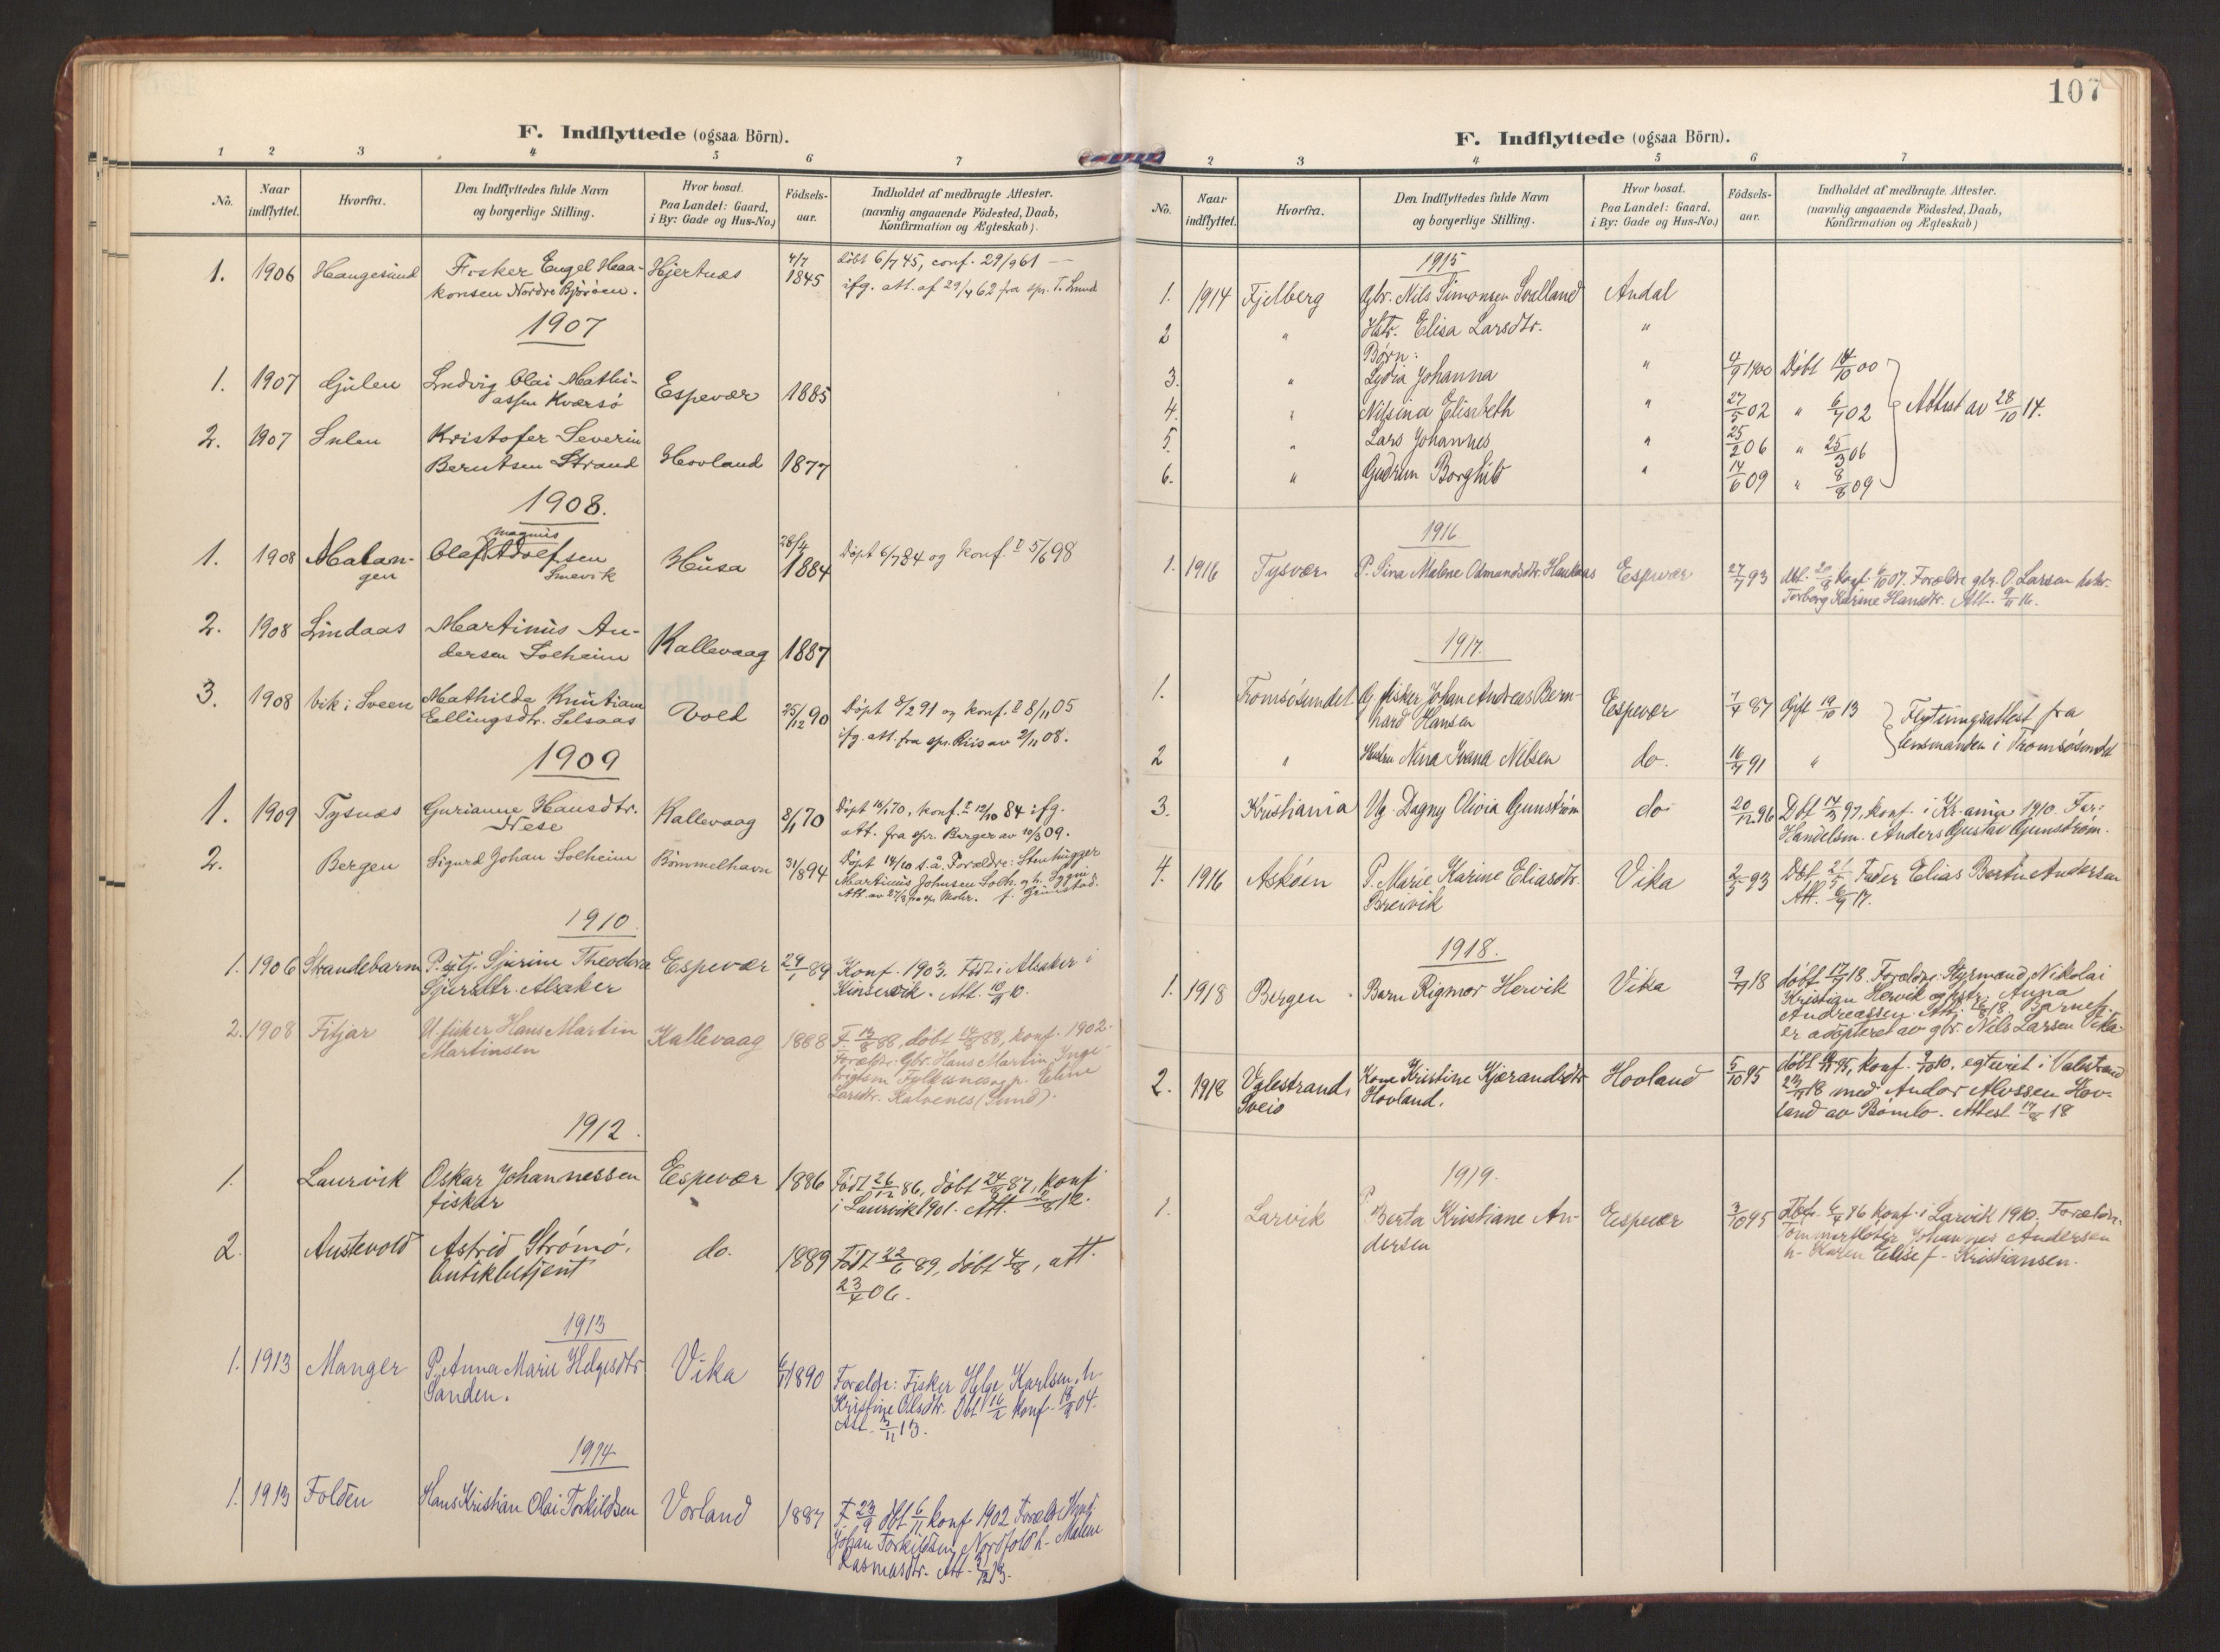 107
F. Indflyttede (ogsaa Börn).
1 2 3 4 5 6 7
No. Naar indflyttet. Hvorfra. Den Indflyttedes fulde Navn og borgerlige Stilling. Hvor bosat. Paa Landet: Gaard, i By: Gade og Hus-No.) Födsels-aar. Indholdet af medbragte Attester. (navnlig angaaende Födested, Daab, Konfirmation og Ægteskab).
1. 1906 Haugesund Fisker Engel Haa- Hjertnæs 4/7 1845 döbt 6/7 45, conf. 29/9 61 —
konsen Nordre Björöen. ifg. att. af 29/4 62 fra spr. T. Lund
1907
1. 1907 Gulen Ludvig Olai Mathi- Espevær 1885
assen Kværsö
2. 1907 Sulen Kristofer Severin
Berntsen Strand Hovland 1877
1908.
Magnus
1. 1908 Malan- Olaf Adolfsen Husa 28/4 1884 Döpt 6/7 84 og konf. 5/6 98
gen Smevik
2. 1908 Lindaas Martinus An- Kallevaag 1887
dersen Solheim
3. 1908 Vik i Sveen Mathilde Knutiane Vold 25/12 90 Döpt 8/2 91 og konf. 8/11 05
Ellingsdtr. Selsaas ifg. att. fra spr. Riis av 2/11 08.
1909
1. 1909 Tysnæs Gurianne Hansdtr. Kallevaag 8/1 70 Döpt 16/1 70, konf. 12/10 84 ifg.
Nese Att. fra spr. Berger av 10/3 09.
2. Bergen Sigurd Johan Solheim Bömmelhavn 31/8 94 Döpt 14/10 s.å. Forældre: Stenhugger
Martinus Johnsen Solh. og h. Sygni
Att. av 27/3 fra spr. Mohr. f. Grimstad.
1910.
1. 1906 Strandebarm P. Sjurine Theodora Espevær 29/1 89 Konf. 1903. Född i Alsaker i
Sjursdtr. Alsaker Kinservik. Att. 10.
2. 1908 Fitjar U. fisker Hans Martin Kallevaag 1888 F. 13/8 88, döbt 88, konf. 1902.
Martinsen Forældre: Gbr. Hans Martin Inge-
brigtsen Fylkesnes og p. Eline
Larsdtr. Kalvenes (Sund).
1912.
1. Laurvik Oskar Johannessen Espevær 1886 Född 26/12 86, döbt 24/ 87, konf
fisker i Laurvik 1901. Att. 2/8 12.
2. Austevold Astrid Strömö, do. 1889 Född 22/6 89, döbt 4/8, att.
butikbetjent 23/4 06.
1913
1. 1913 Manger P. Anna Marie Helgesdtr. Vika 1890 Forældre: Fisker Helge Karlsen, h-
Sanden. Kristine Olsdtr. Döbt konf. 04.
Att. 3/11 13.
1914
1. 1913 Folden Hans Kristian Olai Torkildsen Vorland 1887 F. 23/9 dbt 6/11 konf 1902 Forældre
Johan Torkildsen Nordfold h- Malene
Rasmusdtr. Att. 13.
F. Indflyttede (ogsaa Börn).
2 3 4 5 6 7
No. Naar indflyttet. Hvorfra. Den Indflyttedes fulde Navn og borgerlige Stilling. Hvor bosat. Paa Landet: Gaard, i By: Gade og Hus-No.) Födsels-aar. Indholdet af medbragte Attester. (navnlig angaaende Födested, Daab, Konfirmation og Ægteskab)
1915
1. 1914 Fjelberg Gbr. Nils Simonsen Svalland Andal
2 " Hstr. Elisa Larsdtr. "
Børn:
3. " Lydia Johanna " 4/9 1900 Döbt 14/10 00
4. " Nilsina Elisabeth " 27/5 02 " 6/7 02 Attest av 28/10 14.
5. " Lars Johannes " 25/2 06 " 25/3 06
6. " Gudrun Borghild " 14/6 09 " 8/8 09
1916
1. 1916 Tysvær P. Sina Malene Osmundsdtr. Haukaas Espevær 27/7 93 dbt. 20/8 konf. 6/10 07. Forældre gbr. O. Larsen hstr.
Torborg Karine Hansdtr. Att. 9/11 16.
1917.
1. Tromsösundet G. fisker Johan Andreas Bern- Espevær 7/4 87 Gift 19/10 13 Flytningsattest fra
hard Hansen lensmanden i Tromsösundet
2 " Hustru Nina Ivana Nilsen do. 16/7 91 "
3. Kristiania Ug. Dagny Olivia Gunström do 20/12 96 Dbt 14/3 97, konf. i Kr.ania 1910. Far:
Handelsm. Anders Gustav Gunström.
4. 1916 Asköen P. Marie Karine Eliasdtr. Vika 2/5 93 Döbt 21/5 Fader Elias Bertin Andersen
Breivik Att. 17.
1918
1. 1918 Bergen Barn Rigmor Hervik Vika 9/ 18 döbt 17/ 18. Forældre: Styrmand Nikolai
Kristian Hervik og hstr. Anna
Andreassen. Att. 18. Barnet
er adopteret av gbr. Nils Larsen Vika.
2. 1918 Valestrand, Kone Kristine Kjerandsdtr. Hovland 5/10 95 döbt 95, konf. 10, egteviet i Valestrand
Sveio Hovland. 18 med Andor Alvssen Hov-
land av Bömlo. Attest 17/8 18
1919.
1. Larvik P. Berta Kristiane An- Espevær 3/10 95 Döbt 6/4 96 konf. i Larvik 1910. Forældre.
dersen Tömmerfløter Johannes Andersen
h- Karen Elise f- Kristiansen.